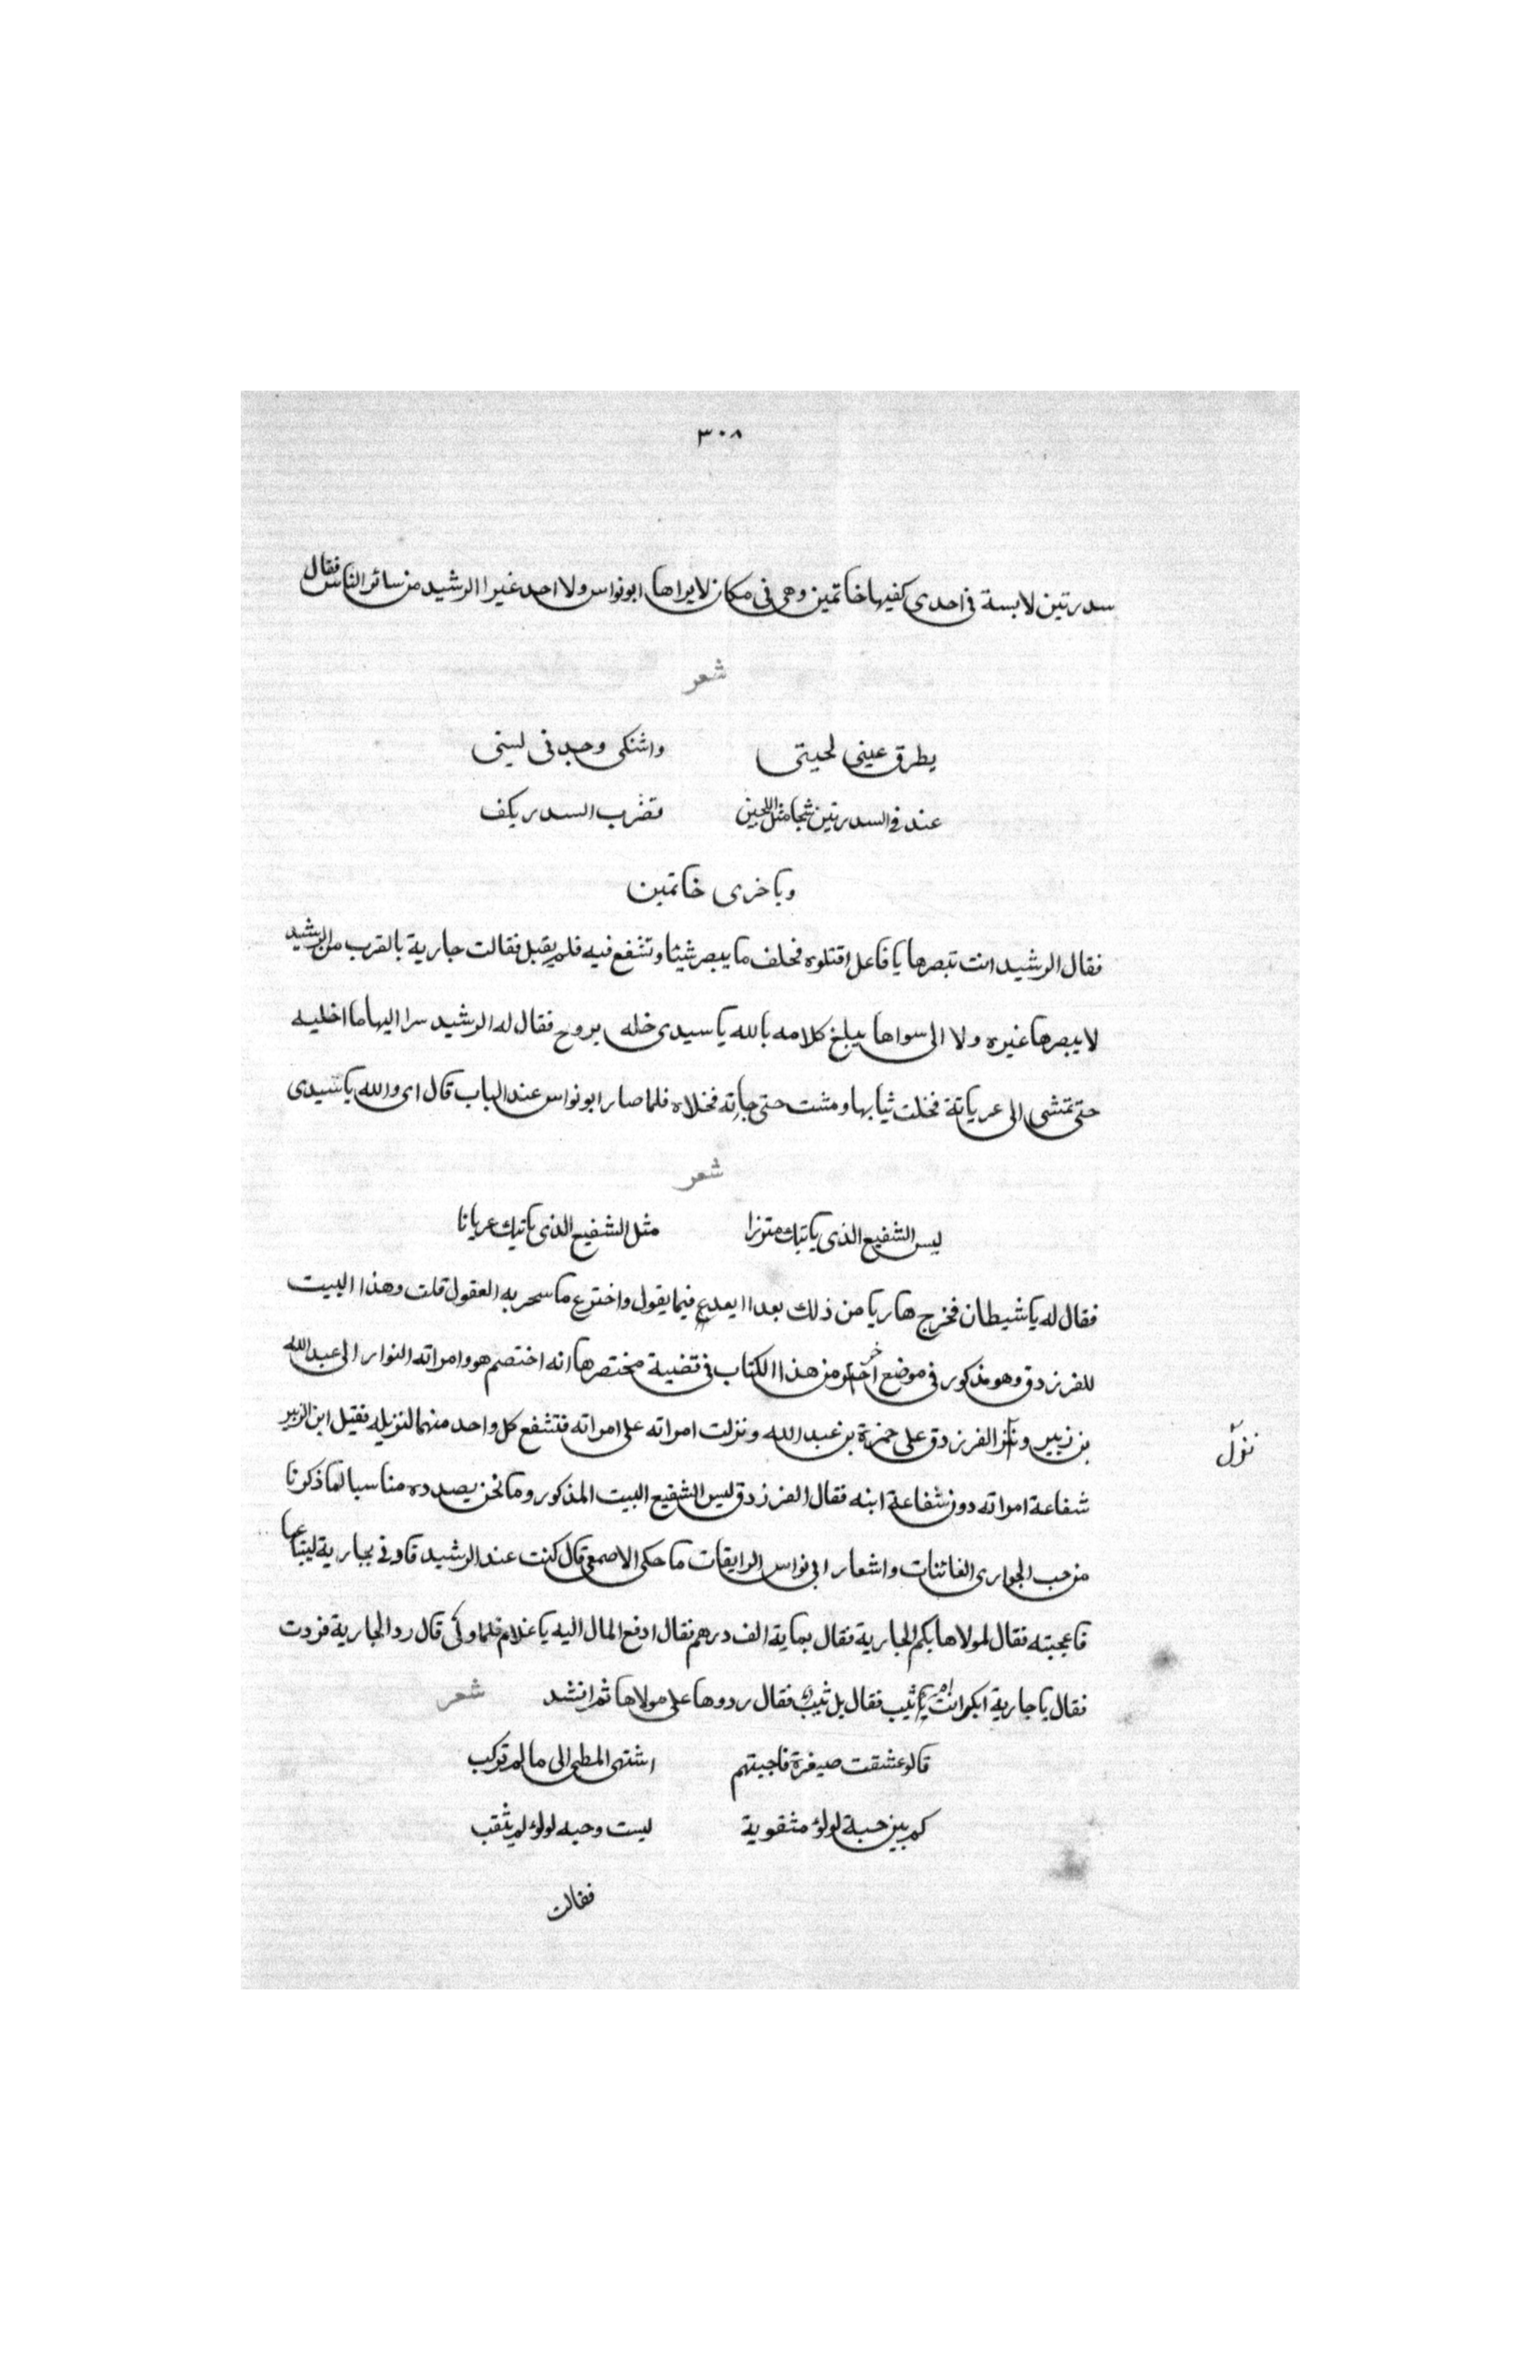 ٣٠٨
سدرتين لابسة فى احدى كفيها خاتمين وهى فى مكان لايراها ابونواس ولا احد غير االرشيد من سائر الناس فقال
شعر
يطرق عينى لحيتى واشتكى وجد فى ليبنى
عند فى السدرتين شجا مثل اللجين تضرب السدر بكف
وباخرى خاتمين
فقال الرشيد انت تبصرها يا فاعل اقتلوه فحلف ما يبصر شيئا وتشفع فيه فلم يقبل فقالت جارية بالقرب من الرشيد
لايبصرها غيره ولا الى سواها يبلغ كلامه بالله يا سيدى خله يروح فقال له الرشيد سرا اليها ما اخليه
حتى تمتشى الى عريانة فخلت ثيابها ومشت حتى جاته فخلاه فلما صار ابونواس عند الباب قال اى والله يا سيدى
شعر
ليس الشفيع الذى ياتيك متزرا مثل الشفيع الذى ياتيك عريانا
فقال له يا شيطان فخرج هاربا من ذلك بعد اايعدع فيما يقول واخترع ما سحر به العقول قلت وهذا البيت
للفرزدق وهو مذكور فى موضع اخر من هذا الكتاب فى قضية مختصرها انه اختصم هو وامراته النوار الى عبدالله
بن زبير ونزل الفرزدق على حمزة بن عبدالله ونزلت امراته على امراته فتشفع كل واحد منهما لنزيله فقبل ابن الزبير
نزل
شفاعة امراته دون شفاعة ابنه فقال الفرزدق ليس الشفيع البيت المذكور وما نحن بصدده مناسبا لما ذكرنا
من حب الجوارى الفاتنات واشعار ابى نواس الرايقات ما حكى الاصمعى قال كنت عند الرشيد قاد فى بجارية ليبتاعها
فاعجبته فقال لمولاها بكم الجارية فقال بماية الف درهم فقال ادفع المال اليه يا غلام فلما ولى قال رد الجارية فردت
فقال يا جارية ابكر انت ام ثيب فقال بل ثيب فقال ردوها على مولاها ثم انشد شعر
قالو عشقت صيغرة فاجبتهم اشتهى المطى الى ما لم تركب
كم بين حبة لولؤ مثقوبة ليست وحبه لولؤ لم يثقب
فقالت